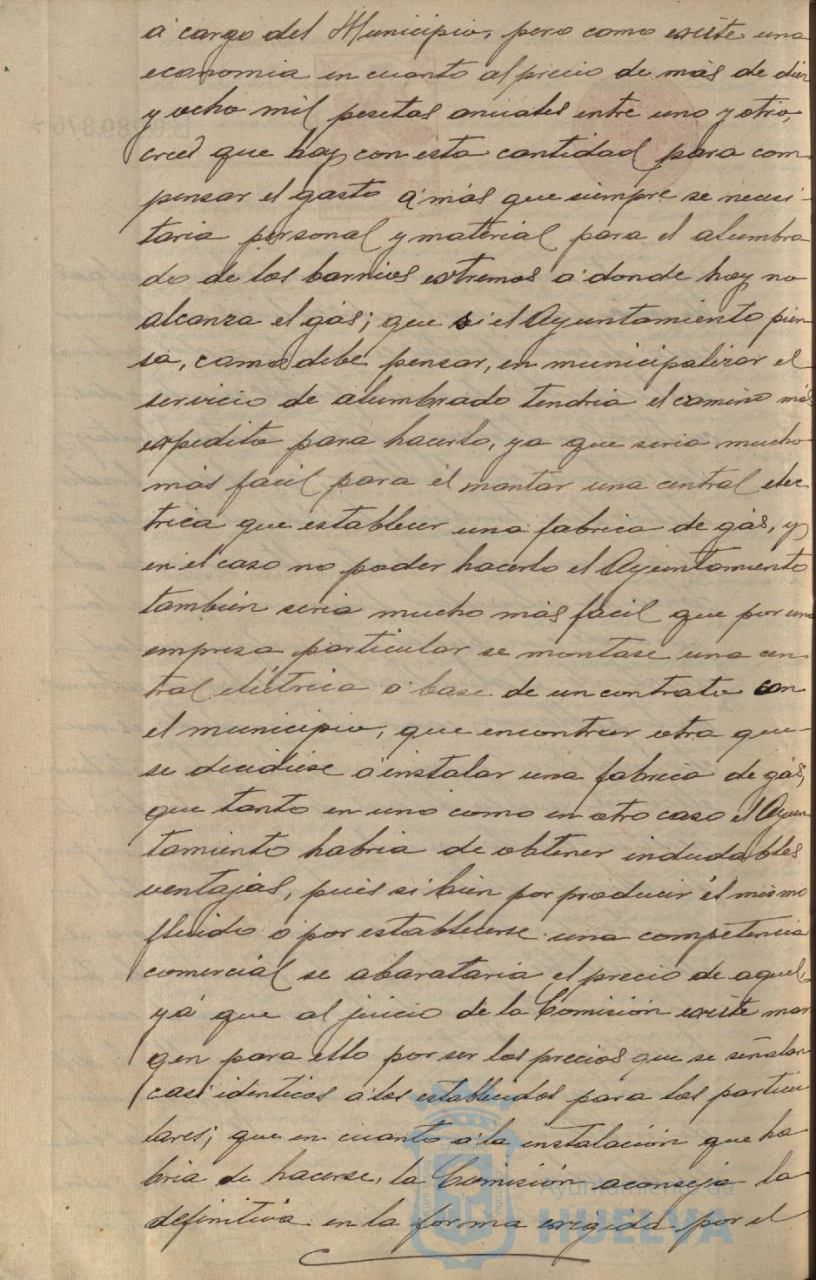 á cargo del Municipio, pero como existe una
economia en cuanto al precio de más de diez
y ocho mil pesetas anuales entre uno y otro,
creé que hay con esta cantidad para com
pensar el gasto á más que siempre se necesi-
taria personal y material para el alumbra
do de los barrios extremos á donde hoy no
alcanza el gás; que si el Ayuntamiento pien
sa, como debe pensar, en municipalizar el
servicio de alumbrado tendria el camino más
expedito para hacerlo, ya que seria mucho
más facil para él montar una central eléc-
trica que establecer una fabrica de gás, y
en el caso no poder hacerlo el Ayuntamiento
tambien seria mucho más facil que por una
empresa particular se montase una cen
tral eléctrica á base de un contrato con
el municipio, que encontrar otra que-
se decidiese á instalar una fabrica de gás,
que tanto en uno como en otro caso el Ayun
tamiento habria de obtener indudables
ventajas, pues si bien por producir él mismo
fluido ó por establecerse una competencia
comercial se abarataria el precio de aquel,
yá que al juicio de la Comisión existe mar
gen para ello por ser los precios que se señalan
casi identicos á los establecidos para los particu
lares; que en cuanto á la instalación que ha
bria de hacerse, la Comisión aconseja la
definitiva en la forma exigida por el
Ayuntamiento de
HUELVA